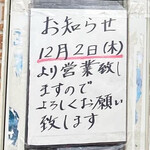 お知らせ
12月2日(木)
より営業致し
ますので
よろしくお願い
致します